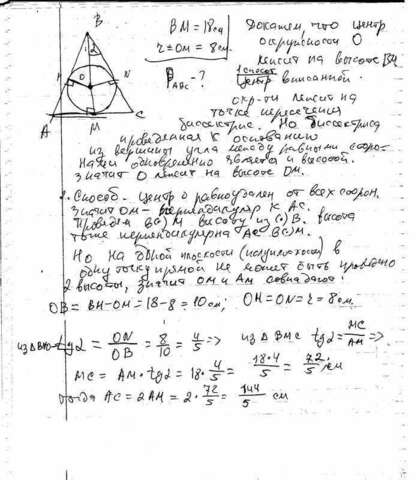 B
BM = 18см
r = OM = 8см
P ABC - ?
2
O
N
A
M
C
Докажем, что центр
окружности O
лежит на высоте BM
1 способ
Центр вписанной
окр-ти лежит на
точке пересечения
биссектрис. Но биссектриса
проведенная к основанию
из вершины угла между равными сторо-
нами одновременно является и высотой.
Значит O лежит на высоте OM.
2. Способ - Центр O равноудален от всех сторон.
Значит OM - перпендикуляр к AC.
Проведя B(·)M высоту из (·)B. высота
тоже перпендикулярна AC B(·)M.
Но на одной плоскости (полуплоскости) в
одну точку прямой не может быть проведено
2 высоты, значит OM и AM совпадают.
OB = BM - OM = 18 - 8 = 10см; OM = ON = r = 8см.
из ΔBNO tg2 = ON/OB = 8/10 = 4/5 => из Δ BMC tg2 = MC/AM =>
MC = AM · tg2 = 18 · 4/5 = 18·4/5 = 72/5 см
тогда AC = 2AM = 2 · 72/5 = 144/5 см